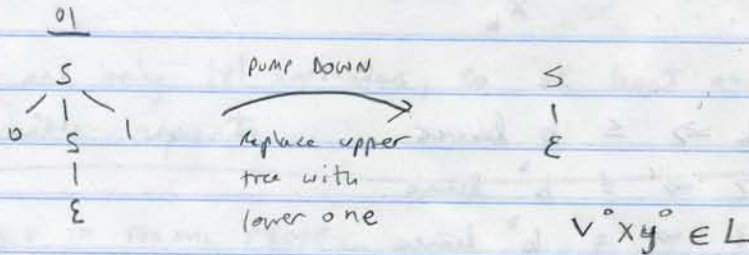 01
S
0 S 1
ε
PUMP DOWN
replace upper
tree with
lower one
S
ε
v° x y° ∈ L